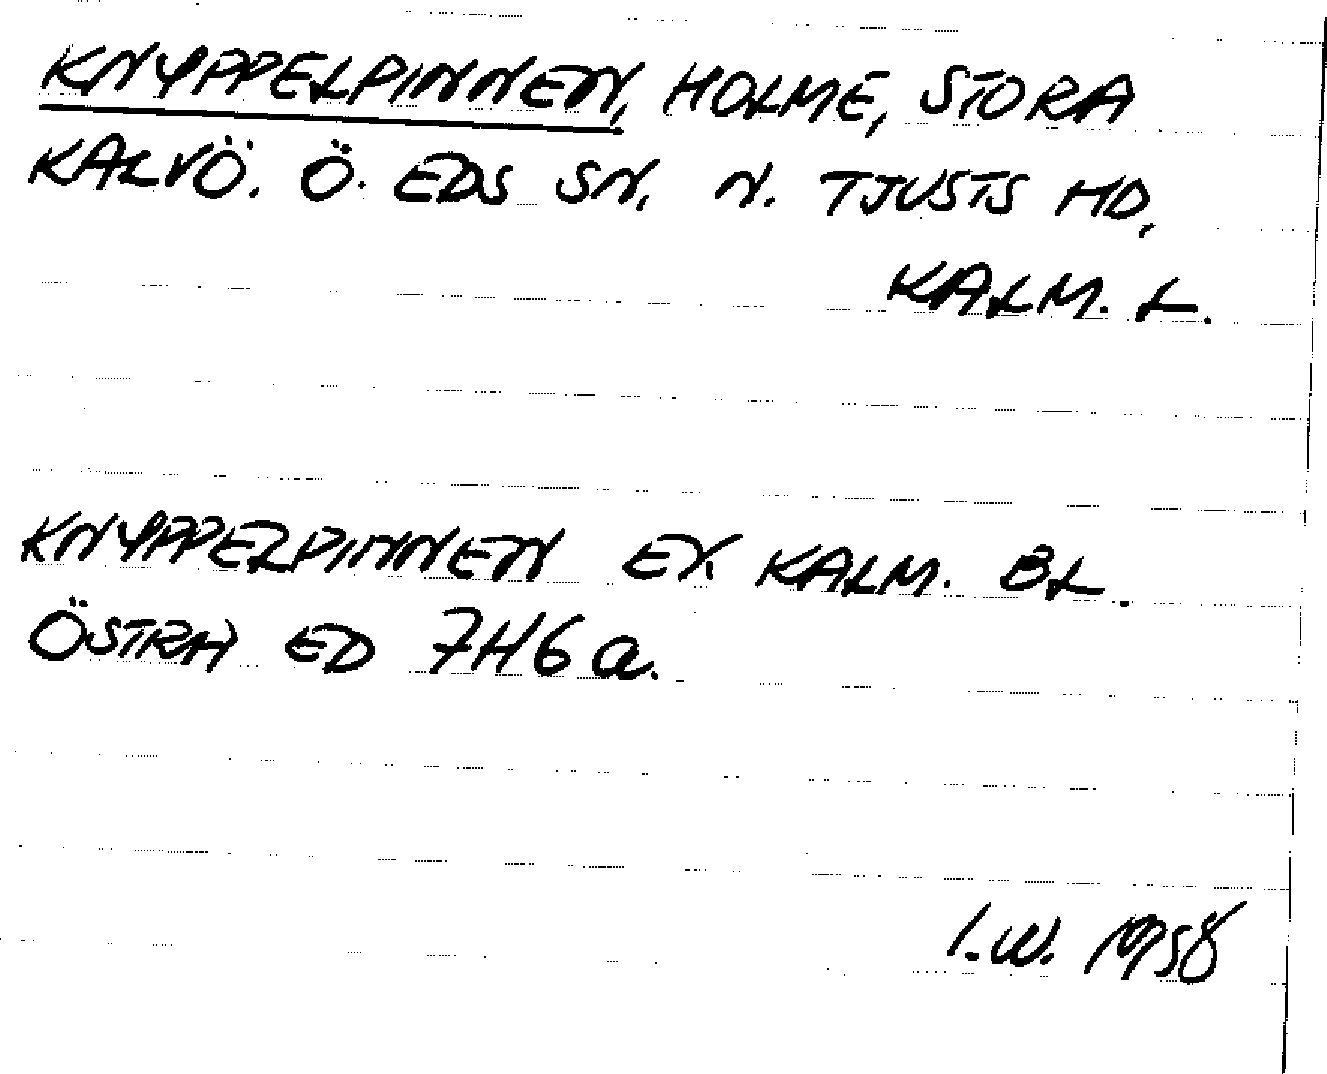 KNYPPELPINNEN, HOLME, STORA
KALVÖ. Ö. EDS SN. N. TJUSTS HD,
KALM. L.
KNYPPELPINNEN EK. KALM. BL.
ÖSTRA ED 7H6a.
I.W. 1958